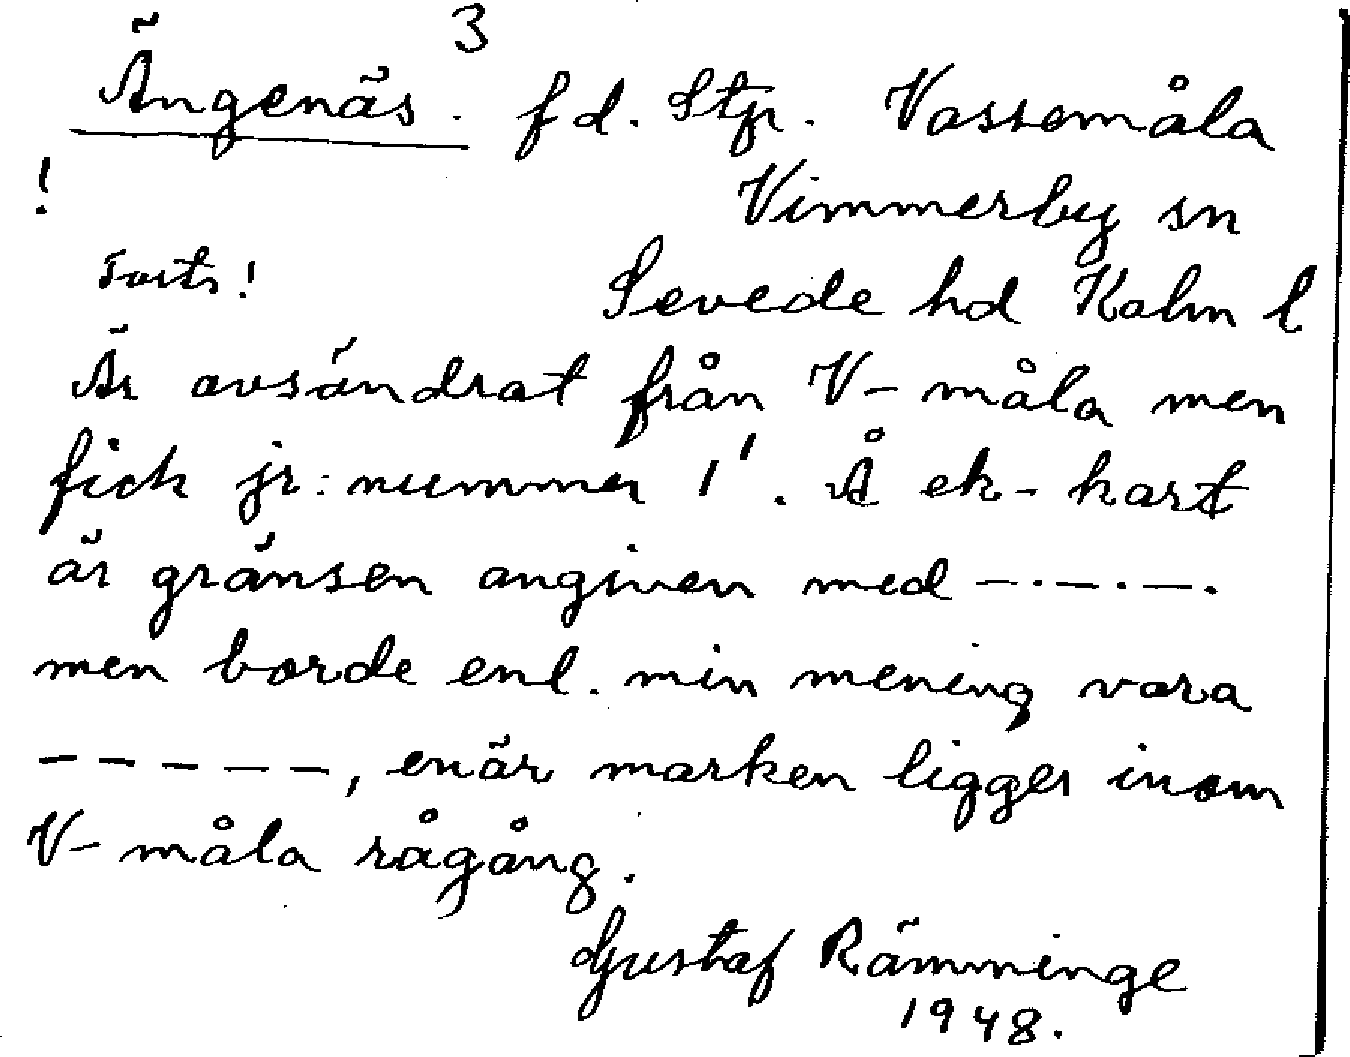 3
Ängenäs. f d. Stp. Vassemåla
! Vimmerby sn
Forts! Sevede hd Kalm l
Är avsöndrat från V-måla men
fick jr: nummer 1¹. Å ek-kart
är gränsen angiven med —·—·—·
men borde enl. min mening vara
-----, enär marken ligger inom
V-måla rågång.
Gustaf Rämminge
1948.